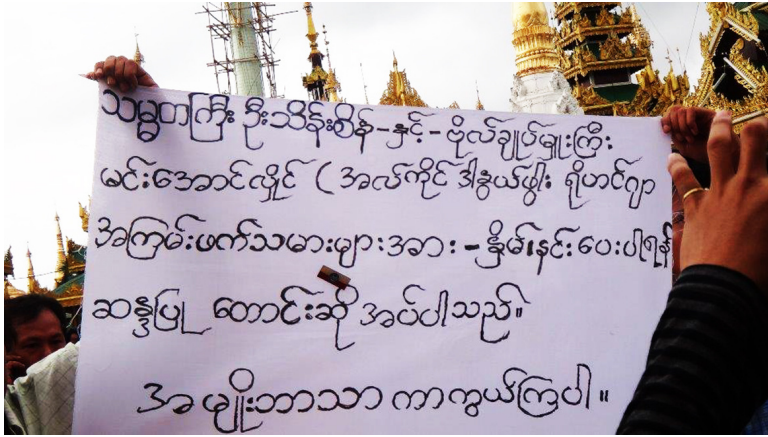 သမ္မတကြီး ဦးသိန်းစိန်-နှင့်-ဗိုလ်ချုပ်မှူးကြီး
မင်းအောင်လှိုင် (အလ်ကိုင် ဒါနွယ်ဖွါး ရိုဟင်ဂျာ
အကြမ်းဖက်သမားများအား-နှိမ်နင်းပေးပါရန်
ဆန္ဒပြု တောင်းဆို အပ်ပါသည်။
အမျိုးဘာသာ ကာကွယ်ကြပါ။